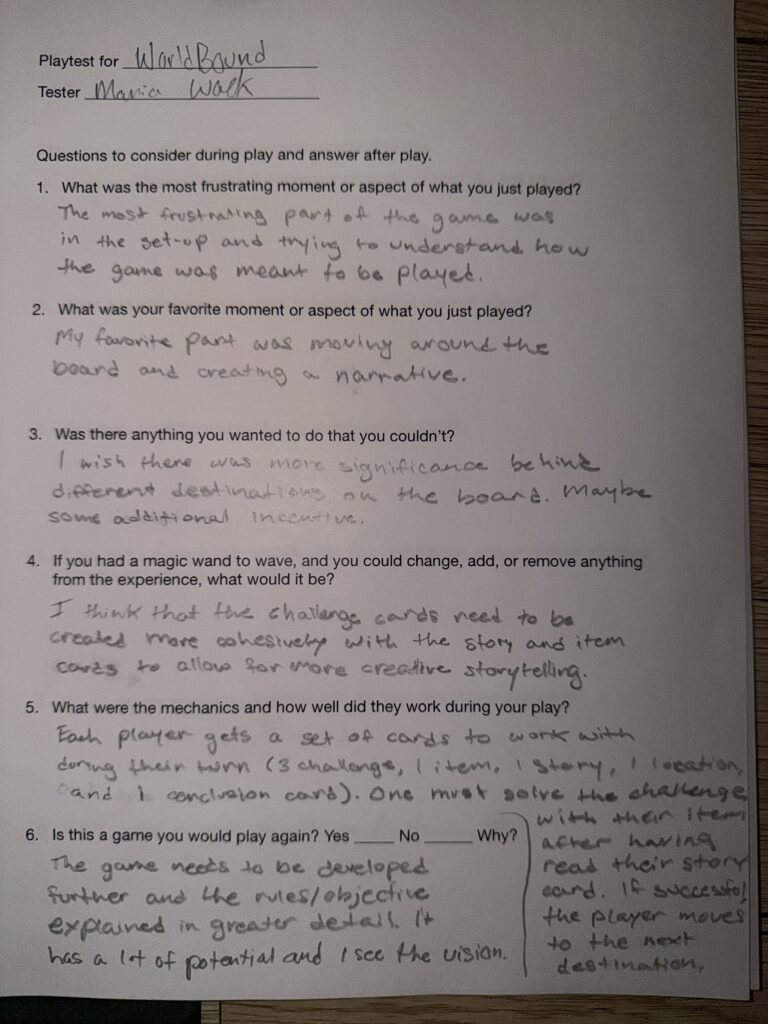 Playtest for WorldBound
Tester Maria Wack
Questions to consider during play and answer after play.
1. What was the most frustrating moment or aspect of what you just played?
The most frustrating part of the game was
in the set-up and trying to understand how
the game was meant to be played.
2. What was your favorite moment or aspect of what you just played?
My favorite part was moving around the
board and creating a narrative.
3. Was there anything you wanted to do that you couldn't?
I wish there was more significance behind
different destinations on the board. Maybe
some additional incentive.
4. If you had a magic wand to wave, and you could change, add, or remove anything
from the experience, what would it be?
I think that the challenge cards need to be
created more cohesively with the story and item
cards to allow for more creative storytelling.
5. What were the mechanics and how well did they work during your play?
Each player gets a set of cards to work with
during their turn (3 challenge, 1 item, 1 story, 1 location,
and 1 conclusion card). One must solve the challenge
with their item
after having
read their story
card. If successful
the player moves
to the next
destination,
6. Is this a game you would play again? Yes ____ No ____ Why?
The game needs to be developed
further and the rules/objective
explained in greater detail. It
has a lot of potential and I see the vision.